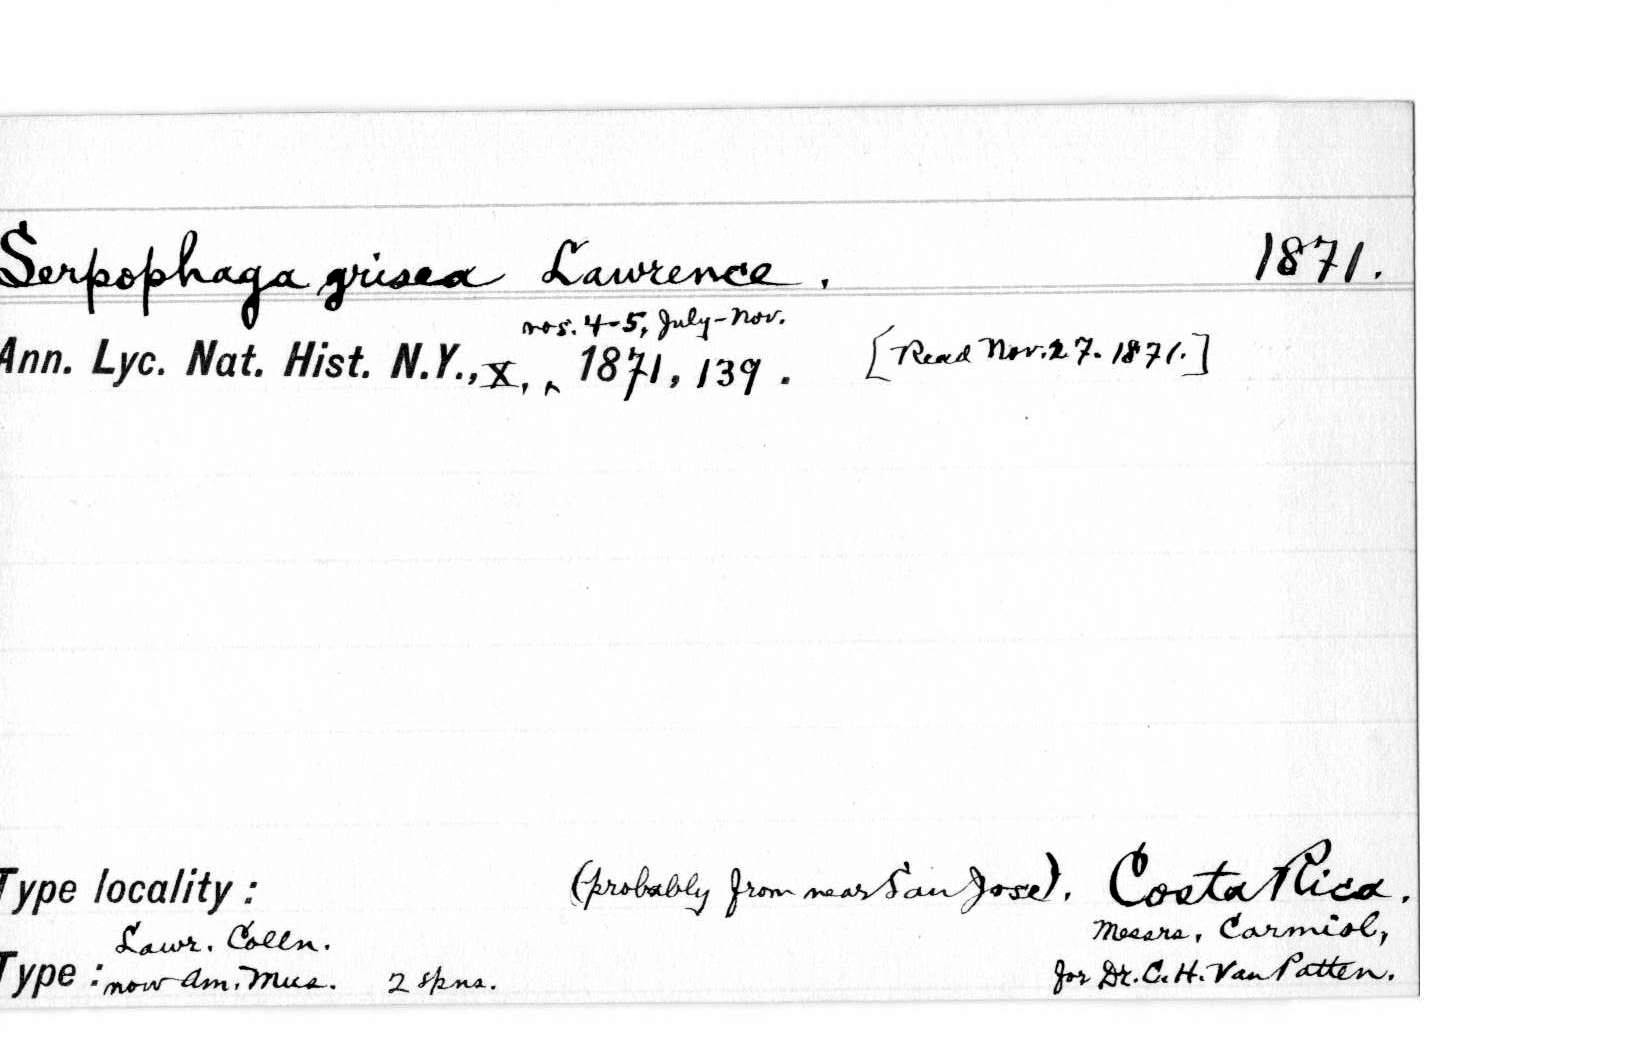 Serpophaga grisea Lawrence. 1871.
nos. 4-5, July-Nov.
Ann. Lyc. Nat. Hist. N.Y., X, ^ 1871, 139. [Read Nov. 27. 1871.]
Type locality: (probably from near San Jose). Costa Rica.
Lawr. Colln. Messrs, Carmiol,
Type: now Am. Mus. 2 spns. for Dr. C. H. Van Patten.